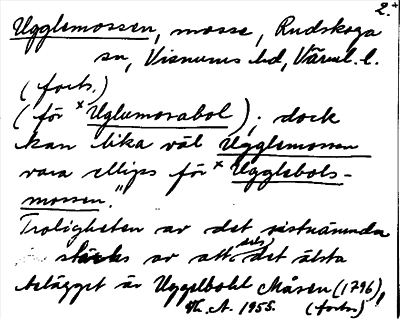 2.
Ugglemossen, mosse, Rudskoga
sn, Visnums hd, Värml. l.
(forts.)
(för ˣUglumosabol); dock
kan lika väl Ugglemossen
vara ellips för ˣUgglebols-
mossen."
Troligheten av det sistnämnda
stärks av att det älsta
belägget är Uggelbohl Måsen (1796),
1955. (forts.)